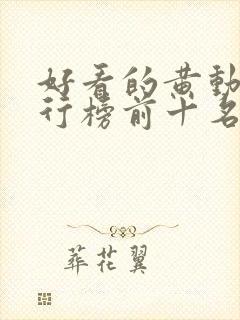 好看的黄动
行榜前十名
葬花翼